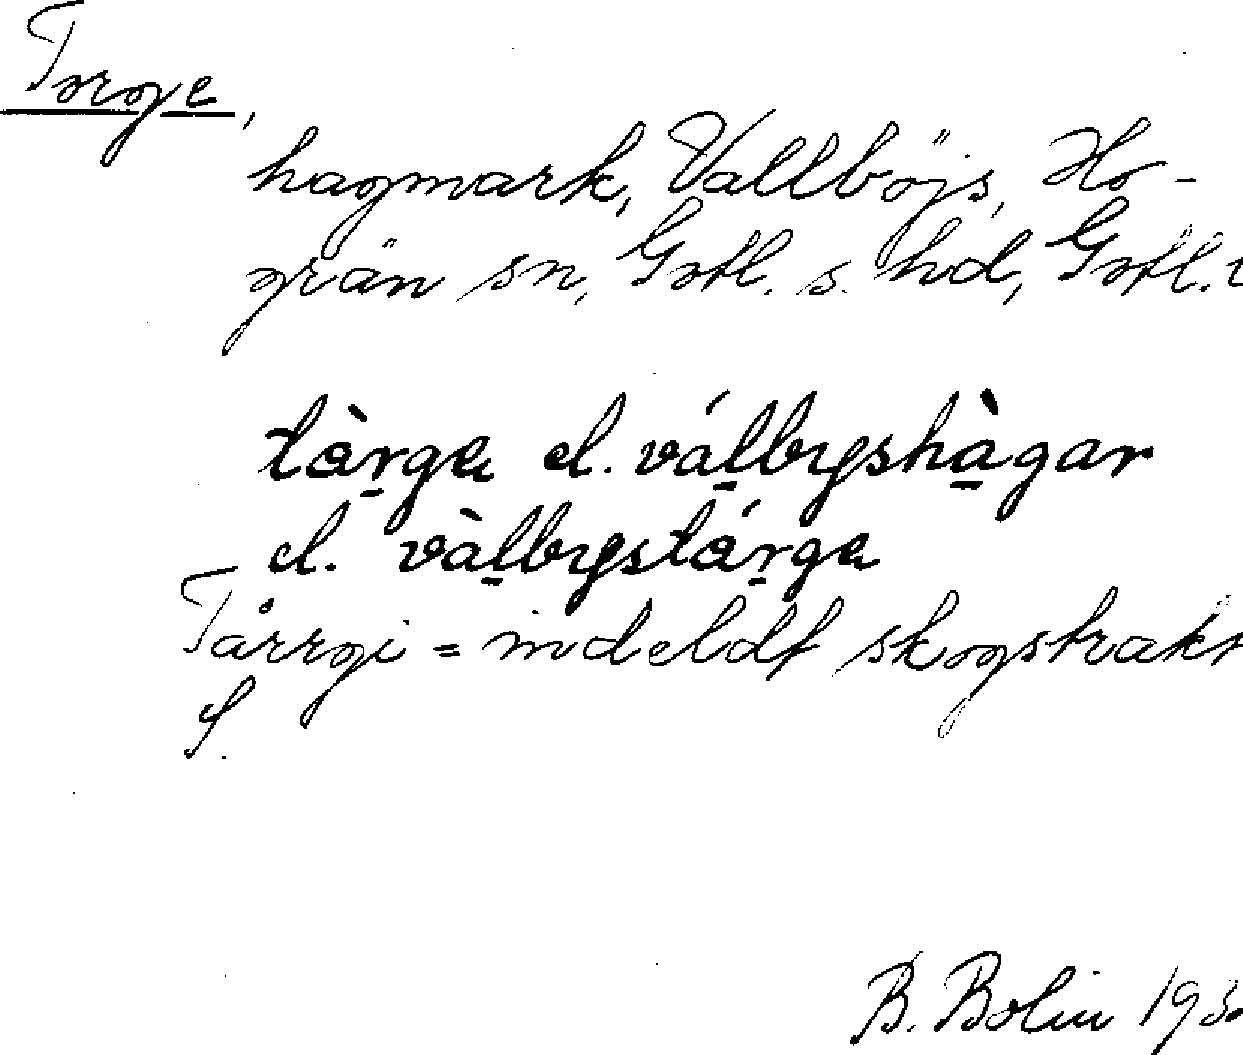 Torge,
hagmark, Vallbÿjs, Ho-
grän sn, Gotl. s. hd, Gotl. l
tàrga el. válbyshàgar
el. vàlbystárga
Tårrgi = indeldt skogstrakt
f.
B. Bolin 193